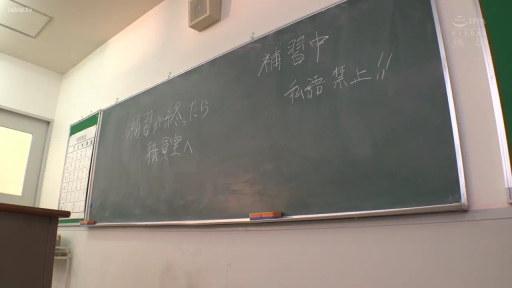 補習中
私語禁止!!
補習が終ったら
職員室へ